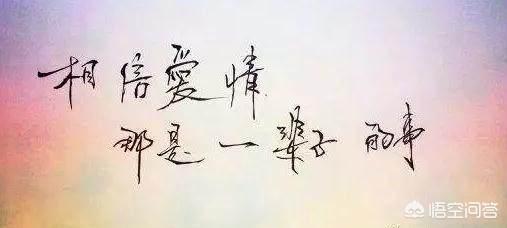 相信爱情
那是一辈子的事
悟空问答